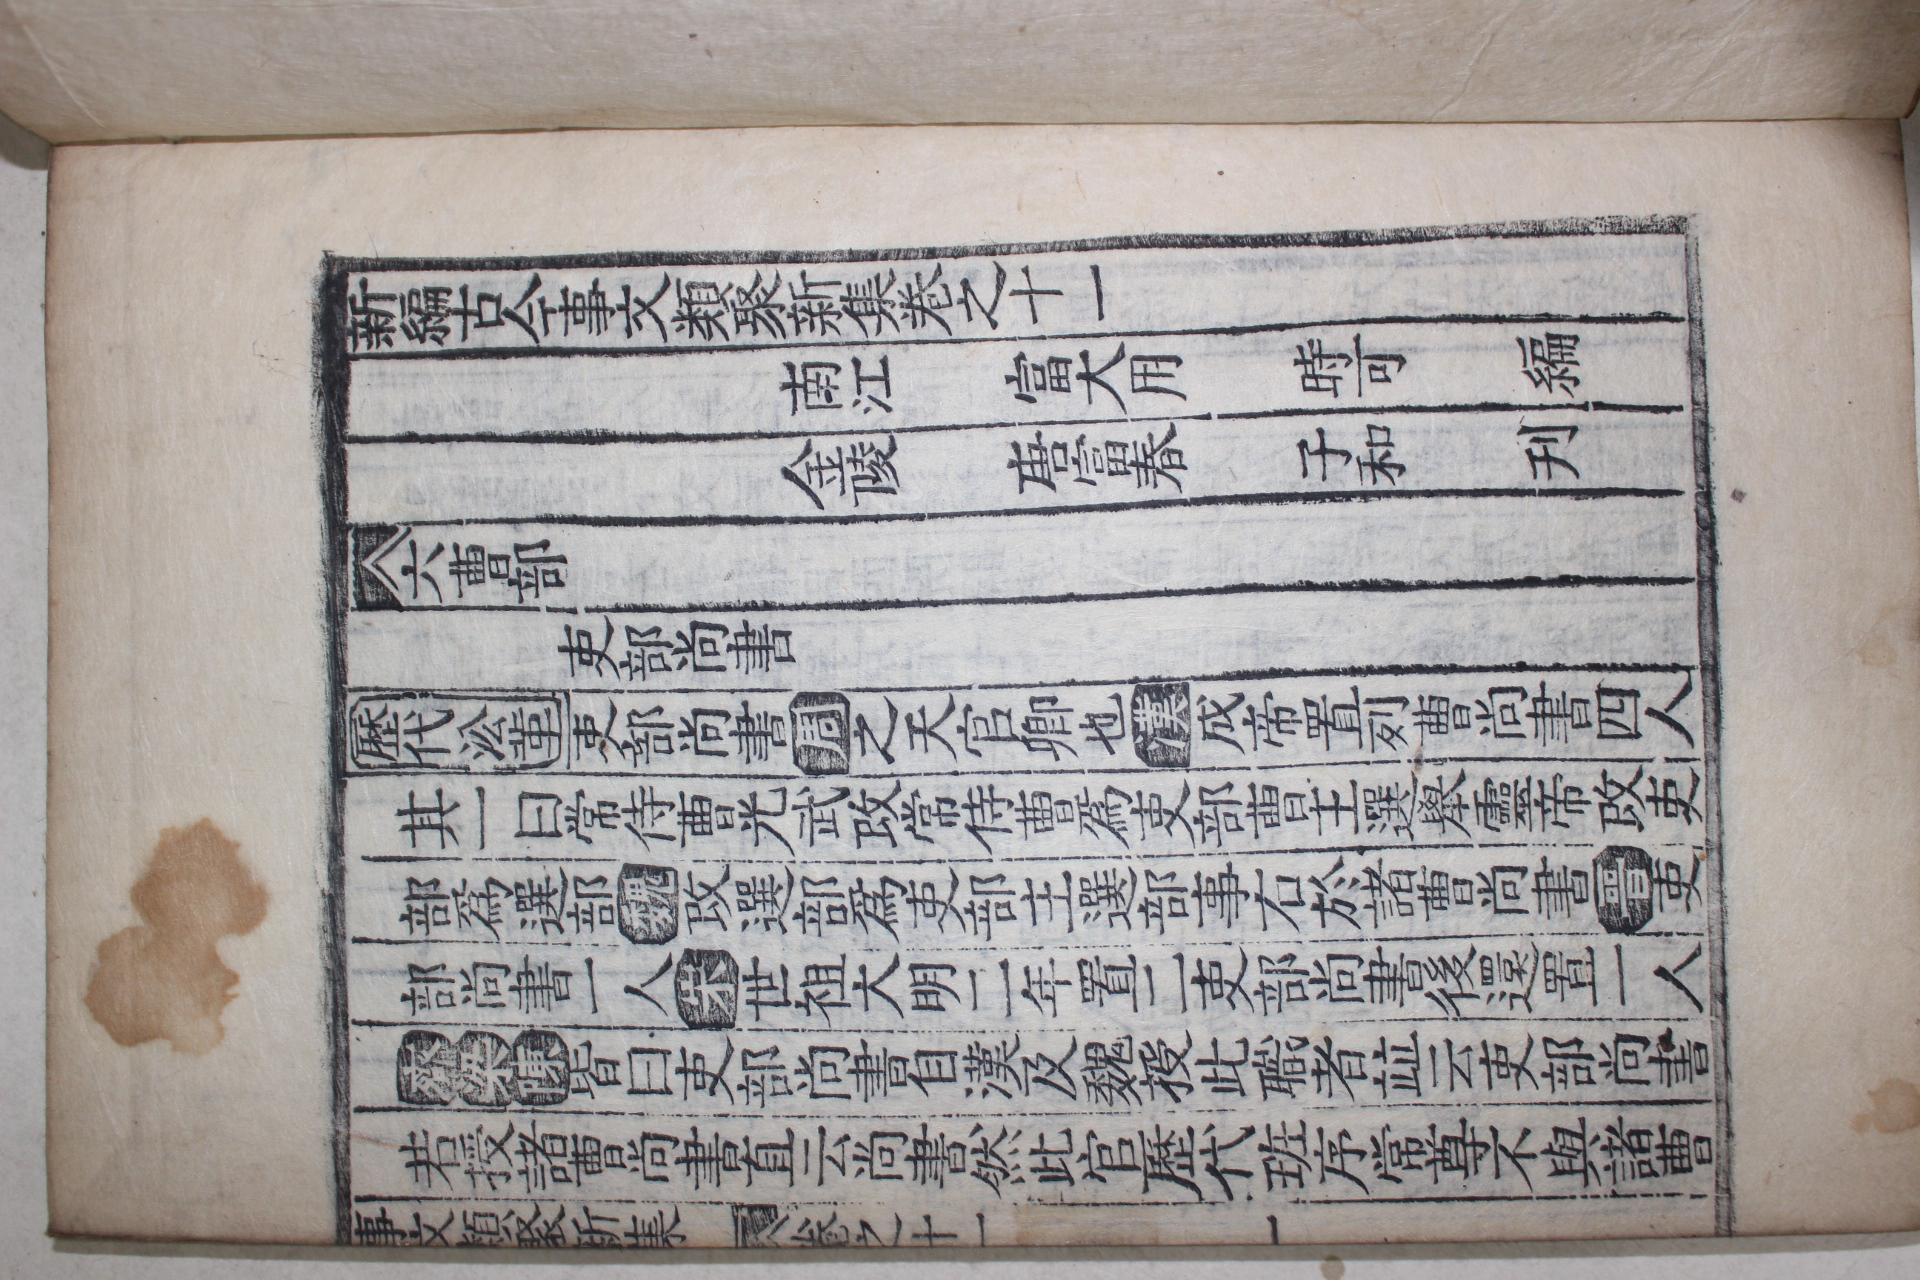 新編古今事文類聚新集卷之十一
南江 富大用 時可 編
金陵 唐富春 子和 刋
六曹部
吏部尚書
歷代沿革 吏部尚書周之天官卿也漢成帝置列曹尚書四人
其一曰常侍曹光武改常侍曹爲吏部曹主選舉靈帝改吏
部爲選部魏改選部爲吏部主選部事右於諸曹尚書晉吏
部尚書一人宋世祖大明二年置二吏部尚書後還置一人
齊梁陳皆曰吏部尚書自漢及魏授此職者並云吏部尚書
若授諸曹尚書直云尚書然此官歷代班序常尊不與諸曹
事文類聚新集 卷之十一 一